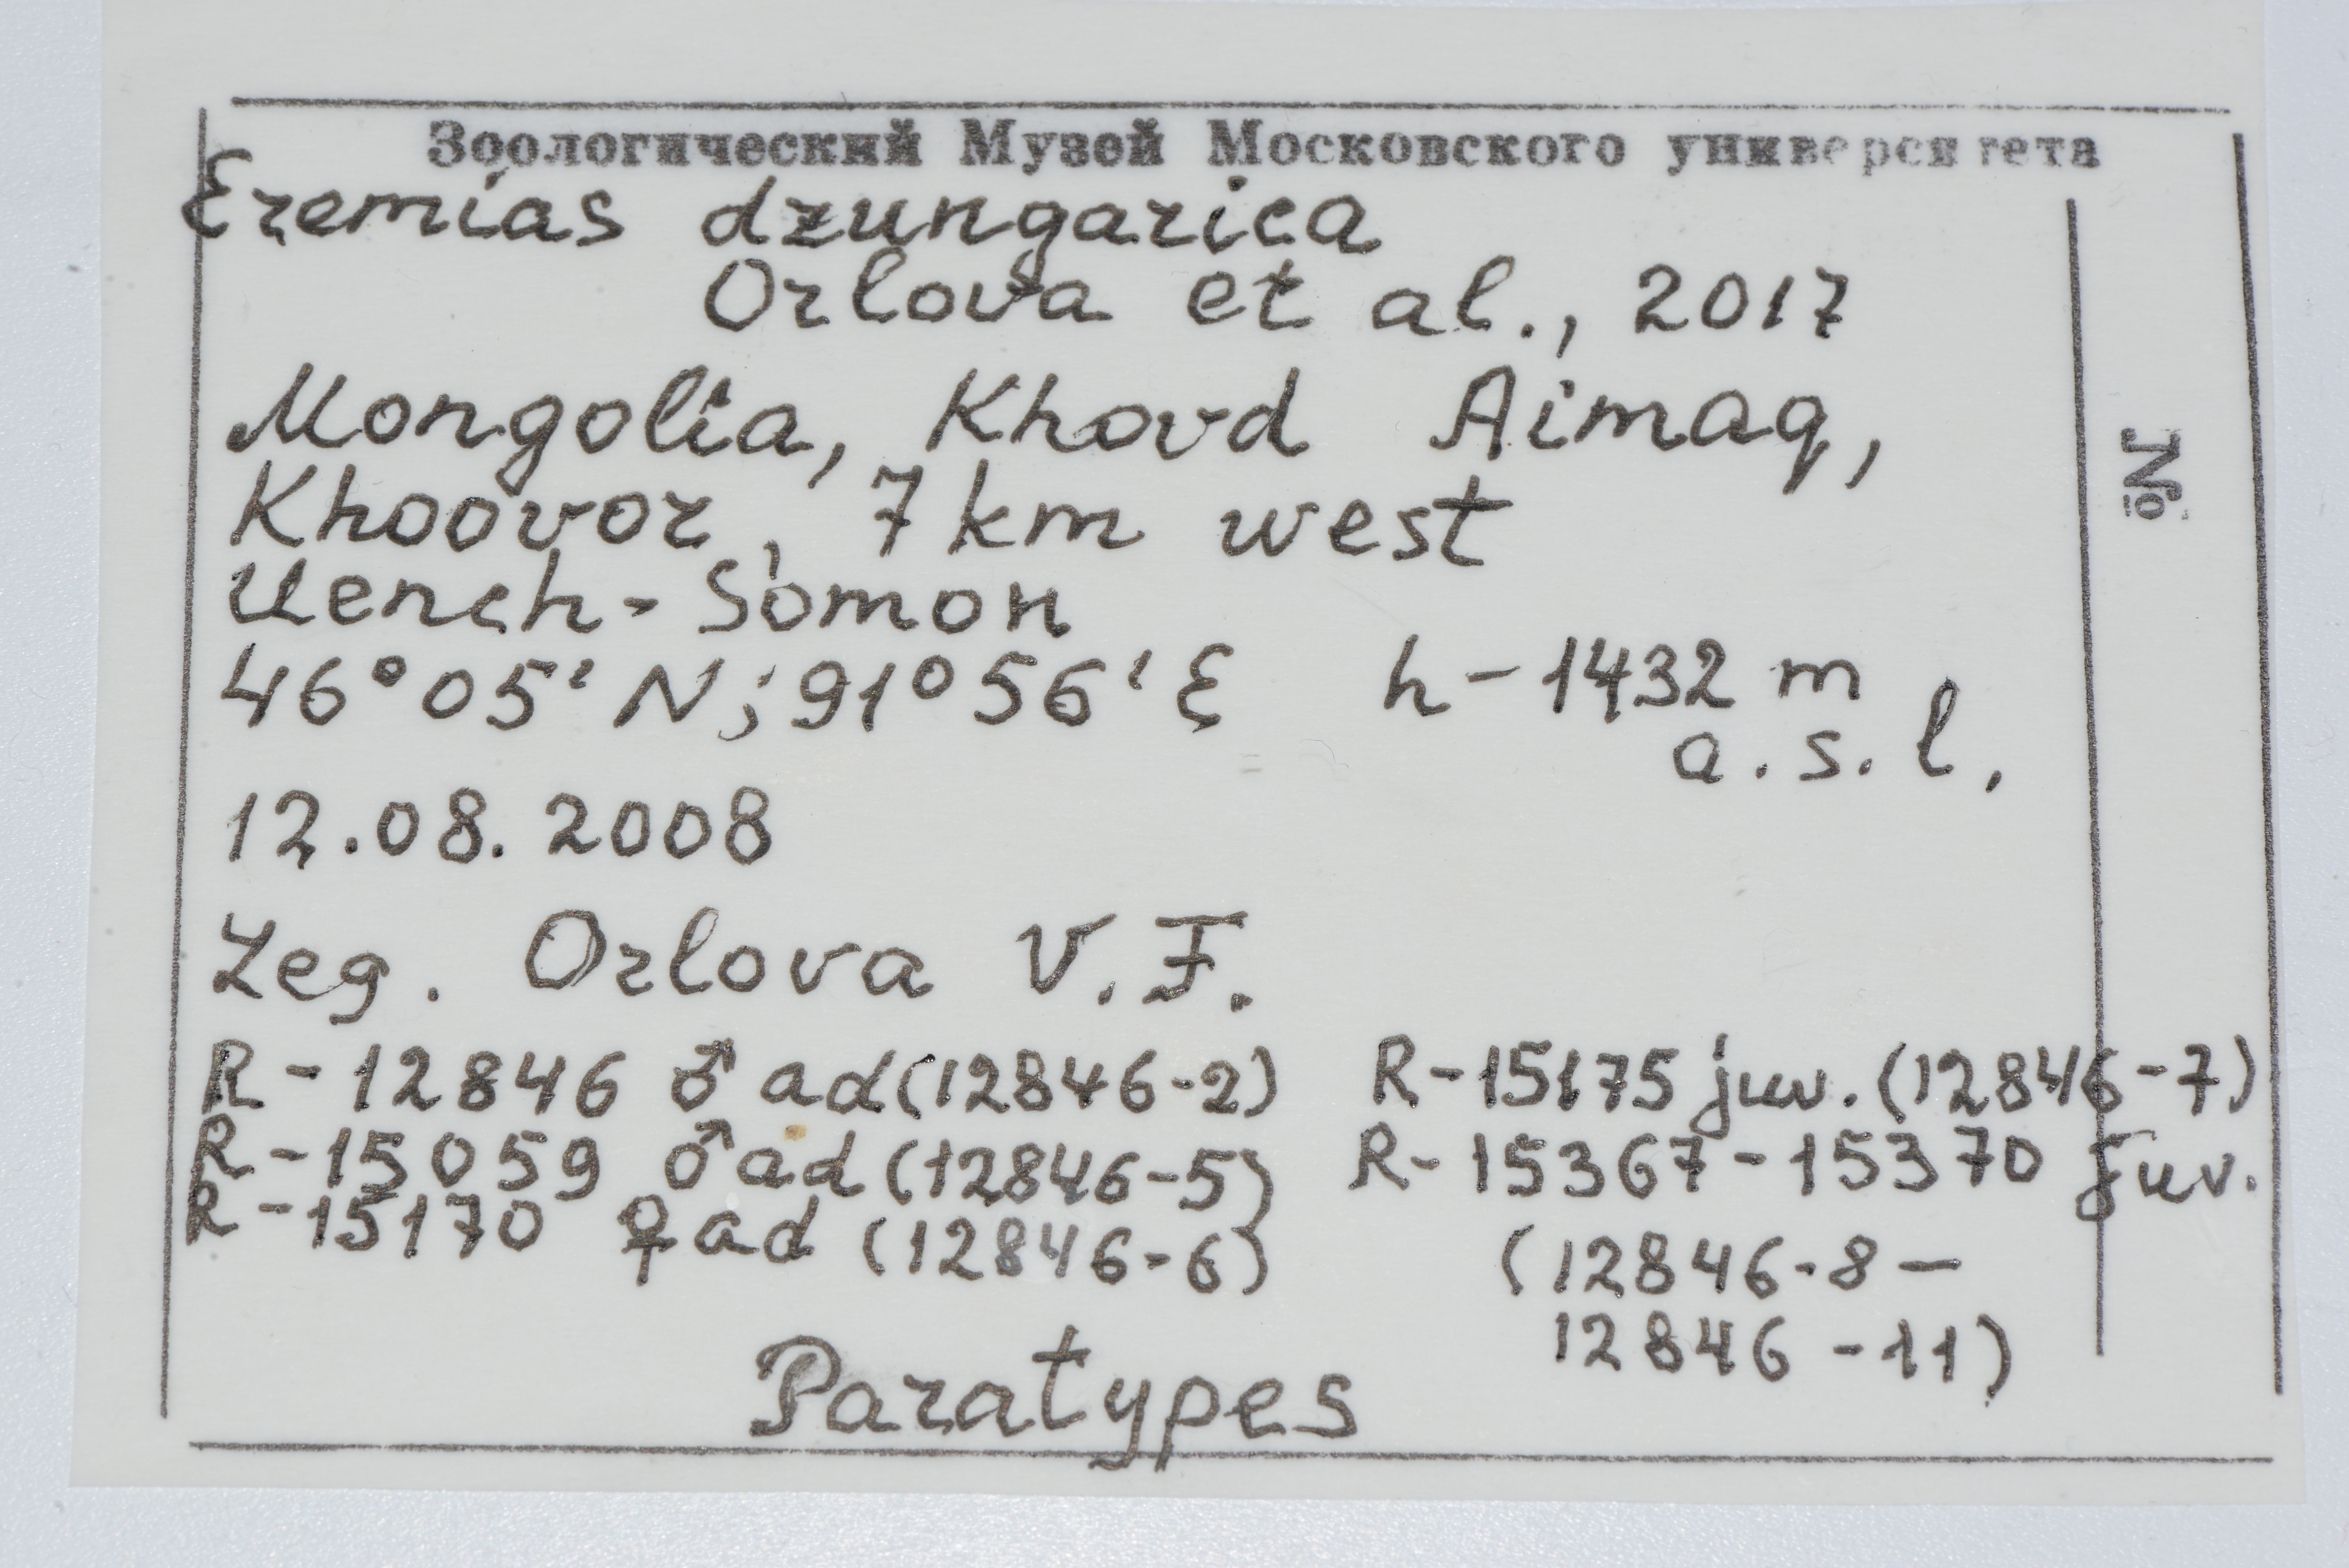 Зоологический Музей Московского университета
Eremias dzungarica
Orlova et al., 2017
Mongolia, Khovd Aimag,
Khoovor, 7 km west
Uench-Somon
46°05' N; 91°56' E h-1432 m
a.s.l.
12.08.2008
Leg. Orlova V.F.
R-12846 ♂ ad (12846-2)
R-15059 ♂ ad (12846-5)
R-15170 ♀ ad (12846-6)
R-15175 juv. (12846-7)
R-15367-15370 juv.
(12846-8 –
12846-11)
Paratypes
№